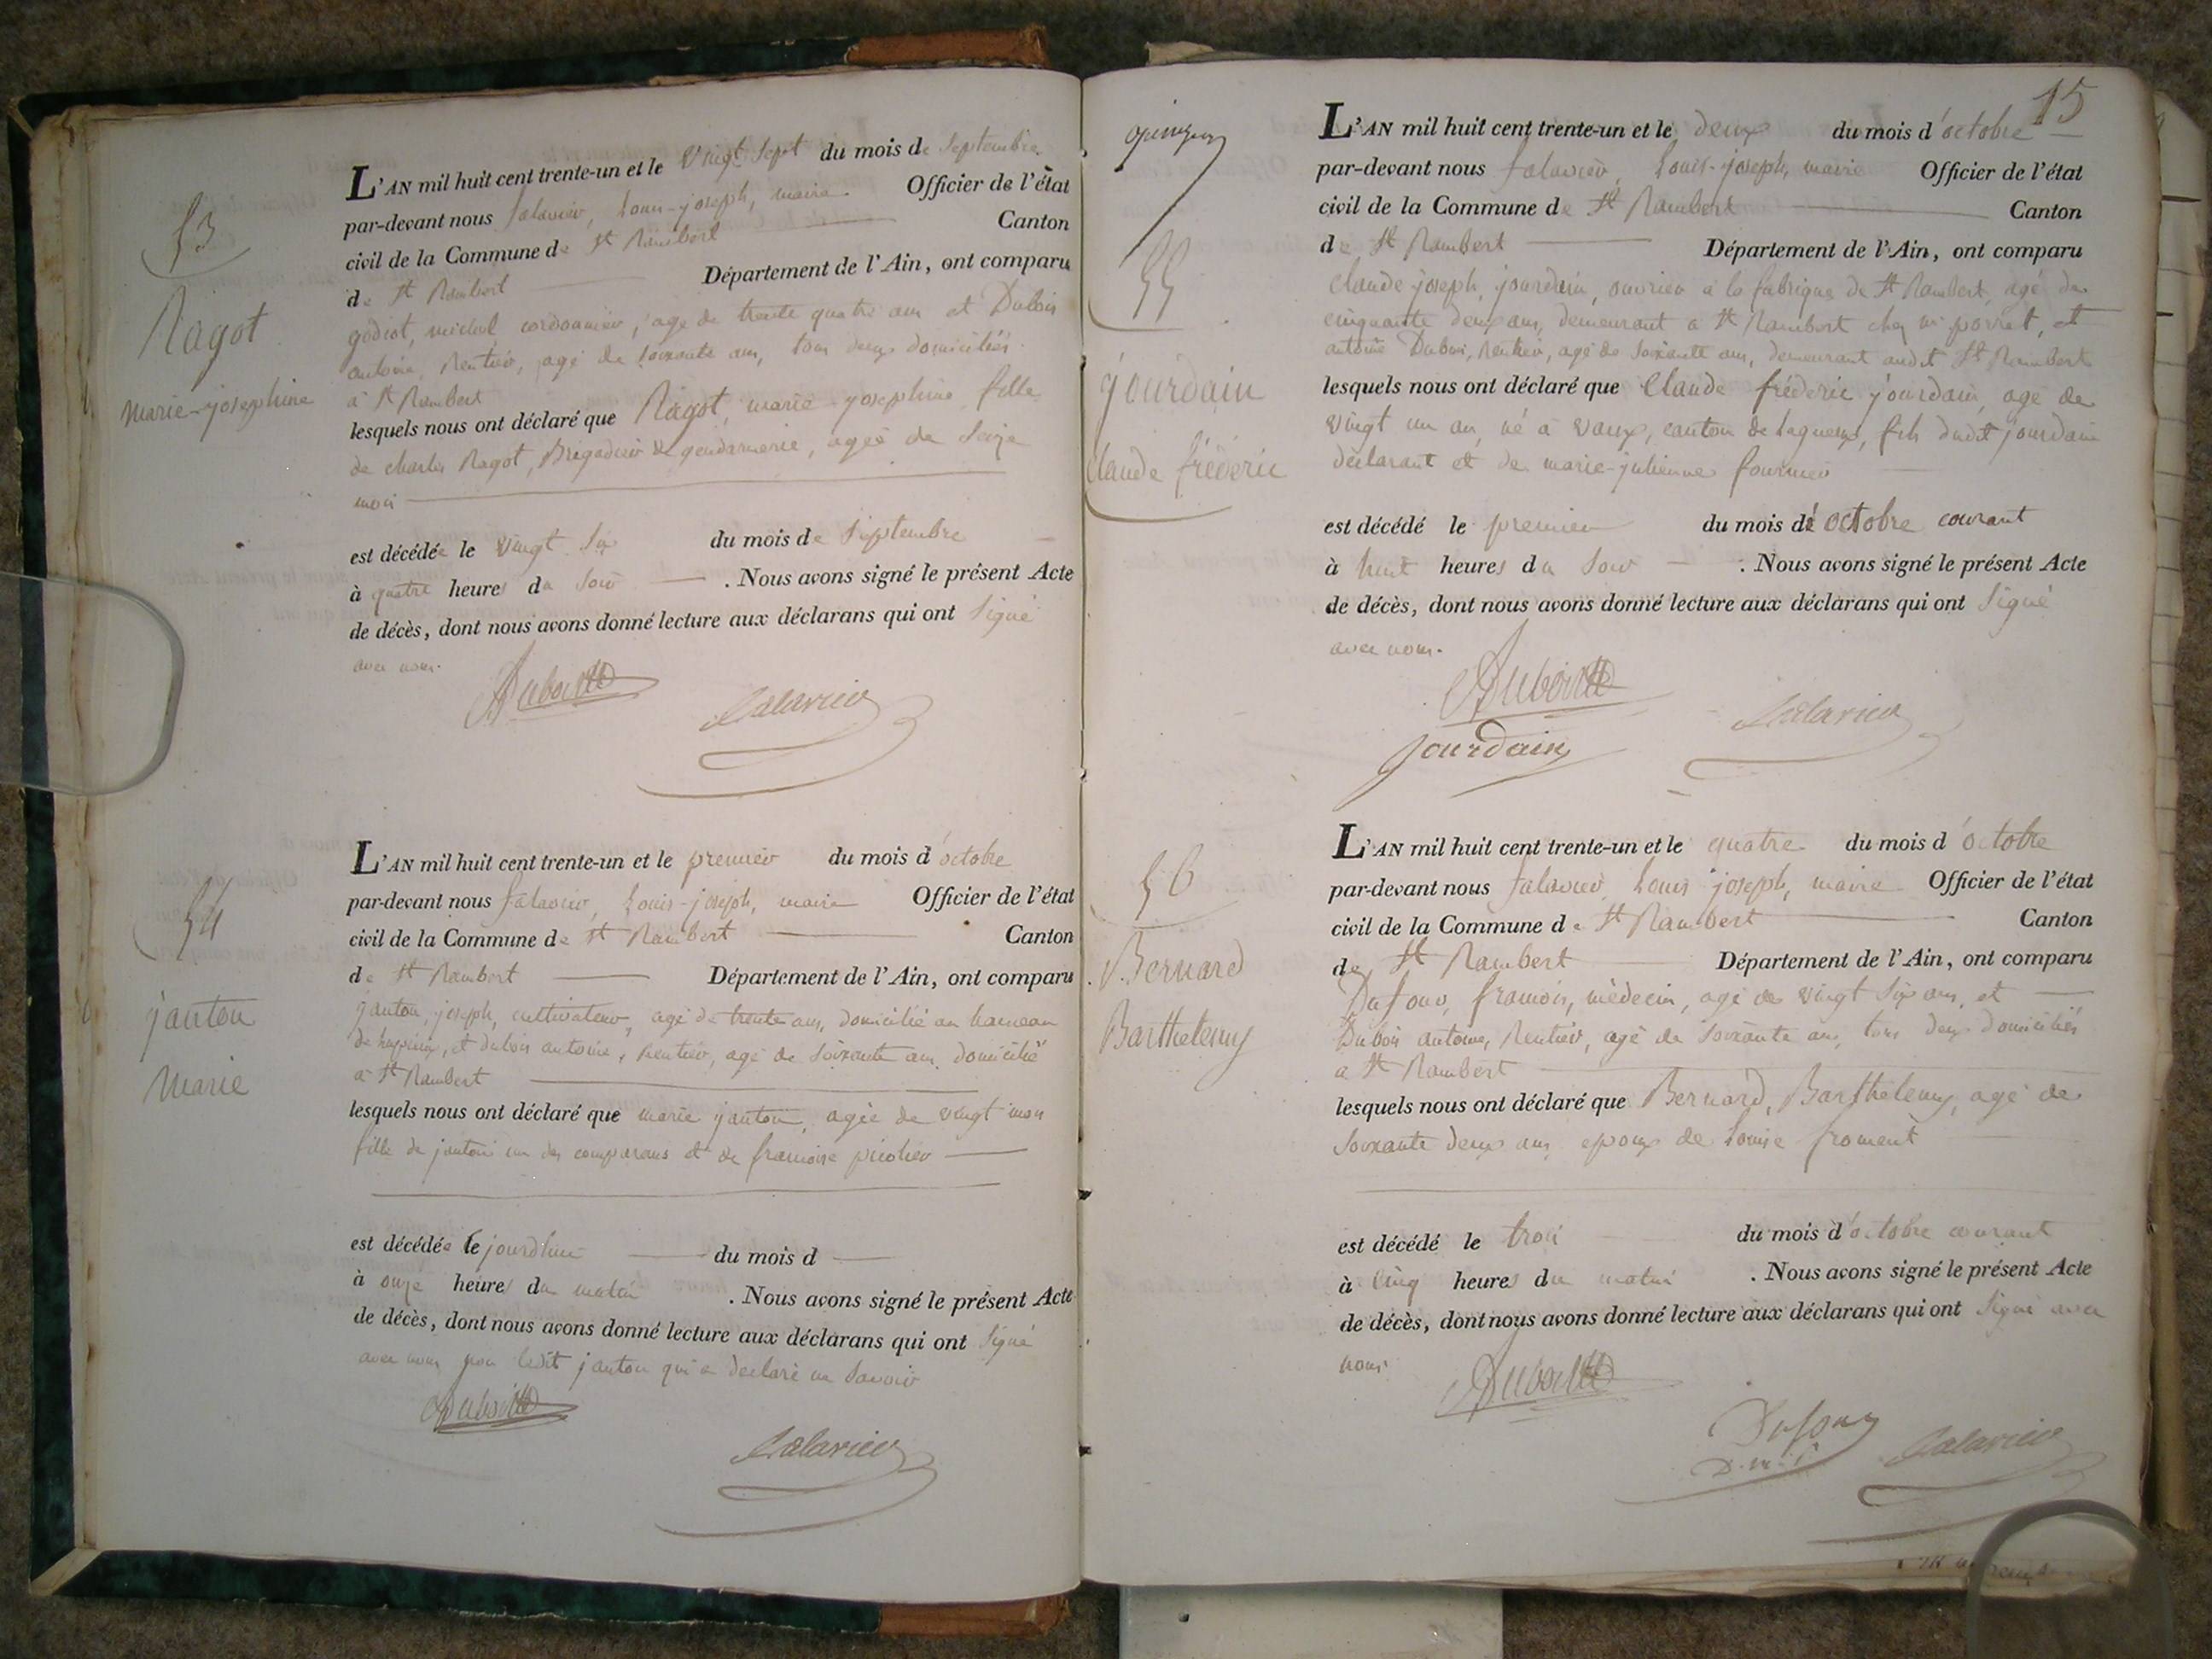 53
Ragot
marie-josephine
L'AN mil huit cent trente-un et le vingt sept du mois de Septembre
par-devant nous falavier, Louis-joseph, maire Officier de l'état
civil de la Commune de St Rambert Canton
de St Rambert Département de l'Ain, ont comparu
godiot, michel cordonnier, agé de trente quatre ans et Dubois
antoine, Rentier, agé de soixante ans, tous deux domiciliés
à St Rambert
lesquels nous ont déclaré que Ragot, marie josephine fille
de charles Ragot, Brigadier de gendarmerie, agée de Seize
mois
est décédée le vingt six du mois de Septembre
à quatre heures du soir . Nous avons signé le présent Acte
de décès, dont nous avons donné lecture aux déclarans qui ont signé
avec nous.
Dubois
falavier
54
janton
marie
L'AN mil huit cent trente-un et le premier du mois d'octobre
par-devant nous falavier, Louis-joseph, maire Officier de l'état
civil de la Commune de St Rambert Canton
de St Rambert Département de l'Ain, ont comparu
janton, joseph, cultivateur, agé de trente ans, domicilié au hameau
et dubois antoine, Rentier, agé de soixante ans domicilié
à St Rambert
lesquels nous ont déclaré que marie janton, agée de vingt mois
fille de janton un des comparans et de francoise
est décédée le jourdhui du mois d
à onze heures du matin . Nous avons signé le présent Acte
de décès, dont nous avons donné lecture aux déclarans qui ont signé
avec nous non ledit janton qui a declaré ne savoir
Dubois
falavier
15
55
jourdain
Claude fréderic
L'AN mil huit cent trente-un et le deux du mois d'octobre
par-devant nous falavier, Louis-joseph, maire Officier de l'état
civil de la Commune de St Rambert Canton
de St Rambert Département de l'Ain, ont comparu
Claude joseph, jourdain, ouvrier à la fabrique de St Rambert, agé de
cinquante deux ans, demeurant à St Rambert chez mr porret, et
antoine Dubois, Rentier, agé de soixante ans, demeurant audit St Rambert
lesquels nous ont déclaré que Claude fréderic jourdain, agé de
vingt un an, né à vaux, canton de lagneux, fils dudit jourdain
déclarant et de marie-julienne fournier
est décédé le premier du mois d'octobre courant
à huit heures du soir . Nous avons signé le présent Acte
de décès, dont nous avons donné lecture aux déclarans qui ont signé
avec nous.
Dubois
falavier
jourdain
56
Bernard
Barthelemy
L'AN mil huit cent trente-un et le quatre du mois d'octobre
par-devant nous falavier Louis joseph, maire Officier de l'état
civil de la Commune de St Rambert Canton
de St Rambert Département de l'Ain, ont comparu
Dufour, francois, médecin, agé de vingt six ans, et
Dubois antoine, Rentier, agé de soixante ans, tous deux domiciliés
à St Rambert
lesquels nous ont déclaré que Bernard, Barthelemy, agé de
soixante deux ans epoux de Louise froment
est décédé le trois du mois d'octobre courant
à cinq heures du matin . Nous avons signé le présent Acte
de décès, dont nous avons donné lecture aux déclarans qui ont signé avec
nous
Dubois
Dufour
falavier